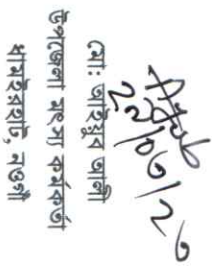 ২২/০৬/২৩
মো: আইয়ুব আলী
উপজেলা মৎস্য কর্মকর্তা
ধামইরহাট, নওগাঁ